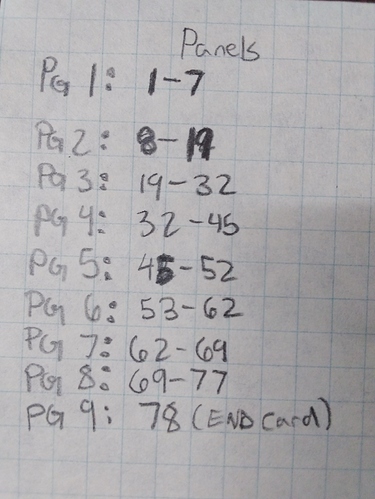 Panels
PG 1: 1-7
PG 2: 8-19
PG 3: 19-32
PG 4: 32-45
PG 5: 45-52
PG 6: 53-62
PG 7: 62-69
PG 8: 69-77
PG 9: 78 (END Card)